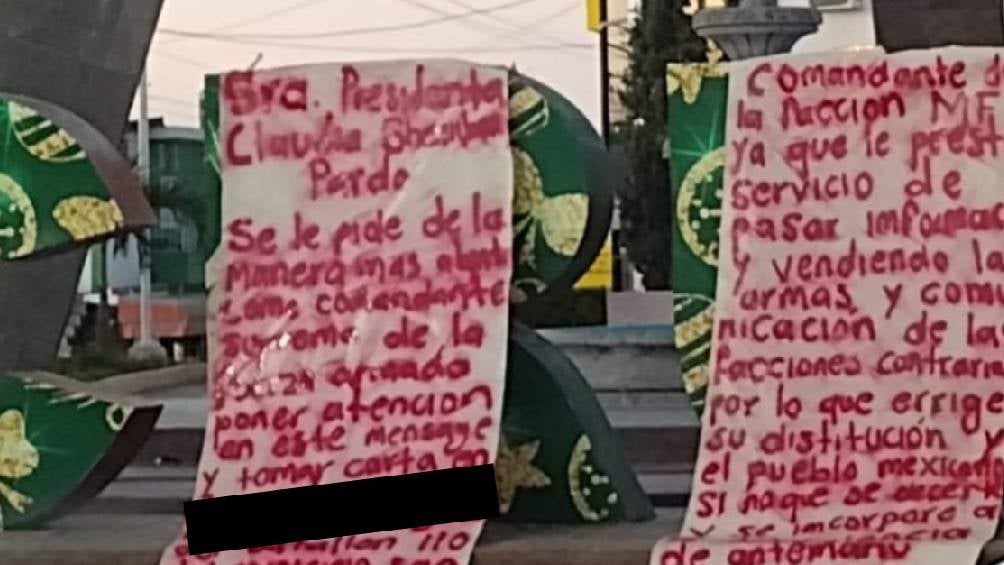 Sra. Presidenta
Claudia Sheinbaum
Pardo
Se le pide de la
manera mas
como comandante
supremo de la
armada
poner atencion
en este mensage
y tomar carta en
Comandante d
la faccion MF
ya que le prest
servicio de
pasar informac
y vendiendo la
armas, y comu
nicacion de la
facciones contraria
por lo que errige
su distitución y
el pueblo mexicano
si haque se
y se incorpora a
de antemano